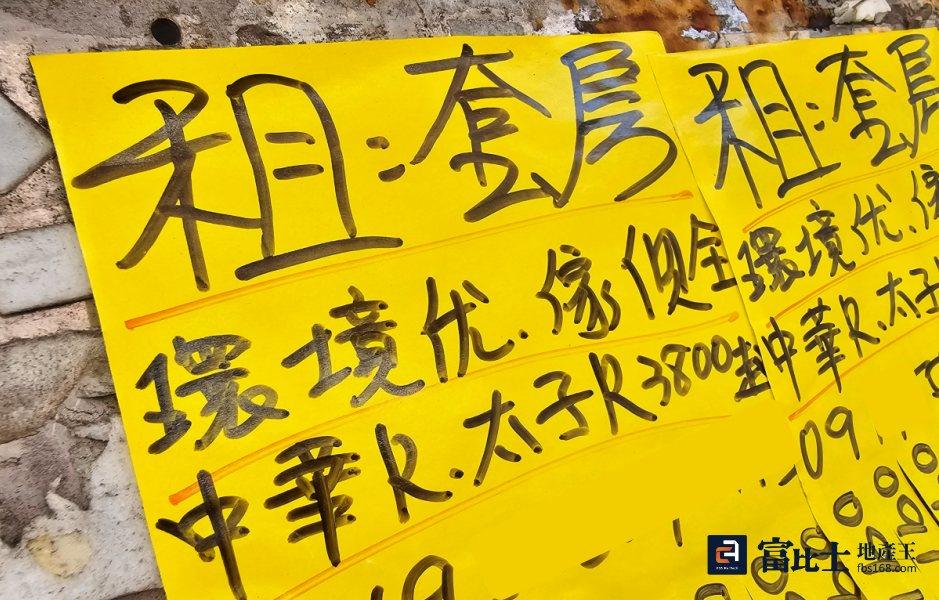 租:套房
環境优.傢俱全
中華R.太子R3800起
租:套房
環境优.傢
中華R.太子
09
富比士 地產王
fbs168.com